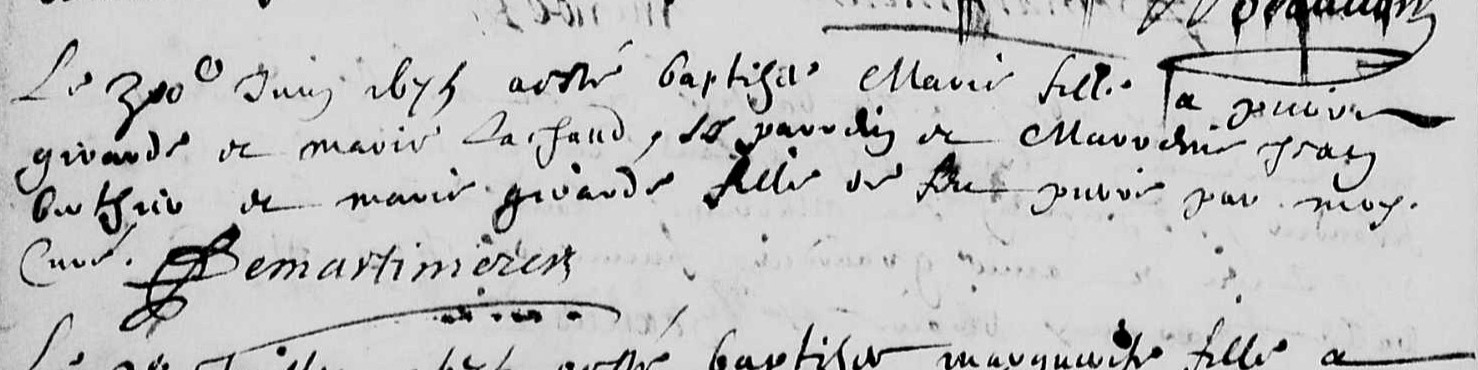 Le Juin 1675 a esté baptisée Marie fille a pierre
girarde et marie Lachaud, le parrein et Marrenie Jean
berthier et marie girarde fille de feu pierre par moy
Curé. Demartimierer
Le a esté baptisée marguerite fille a